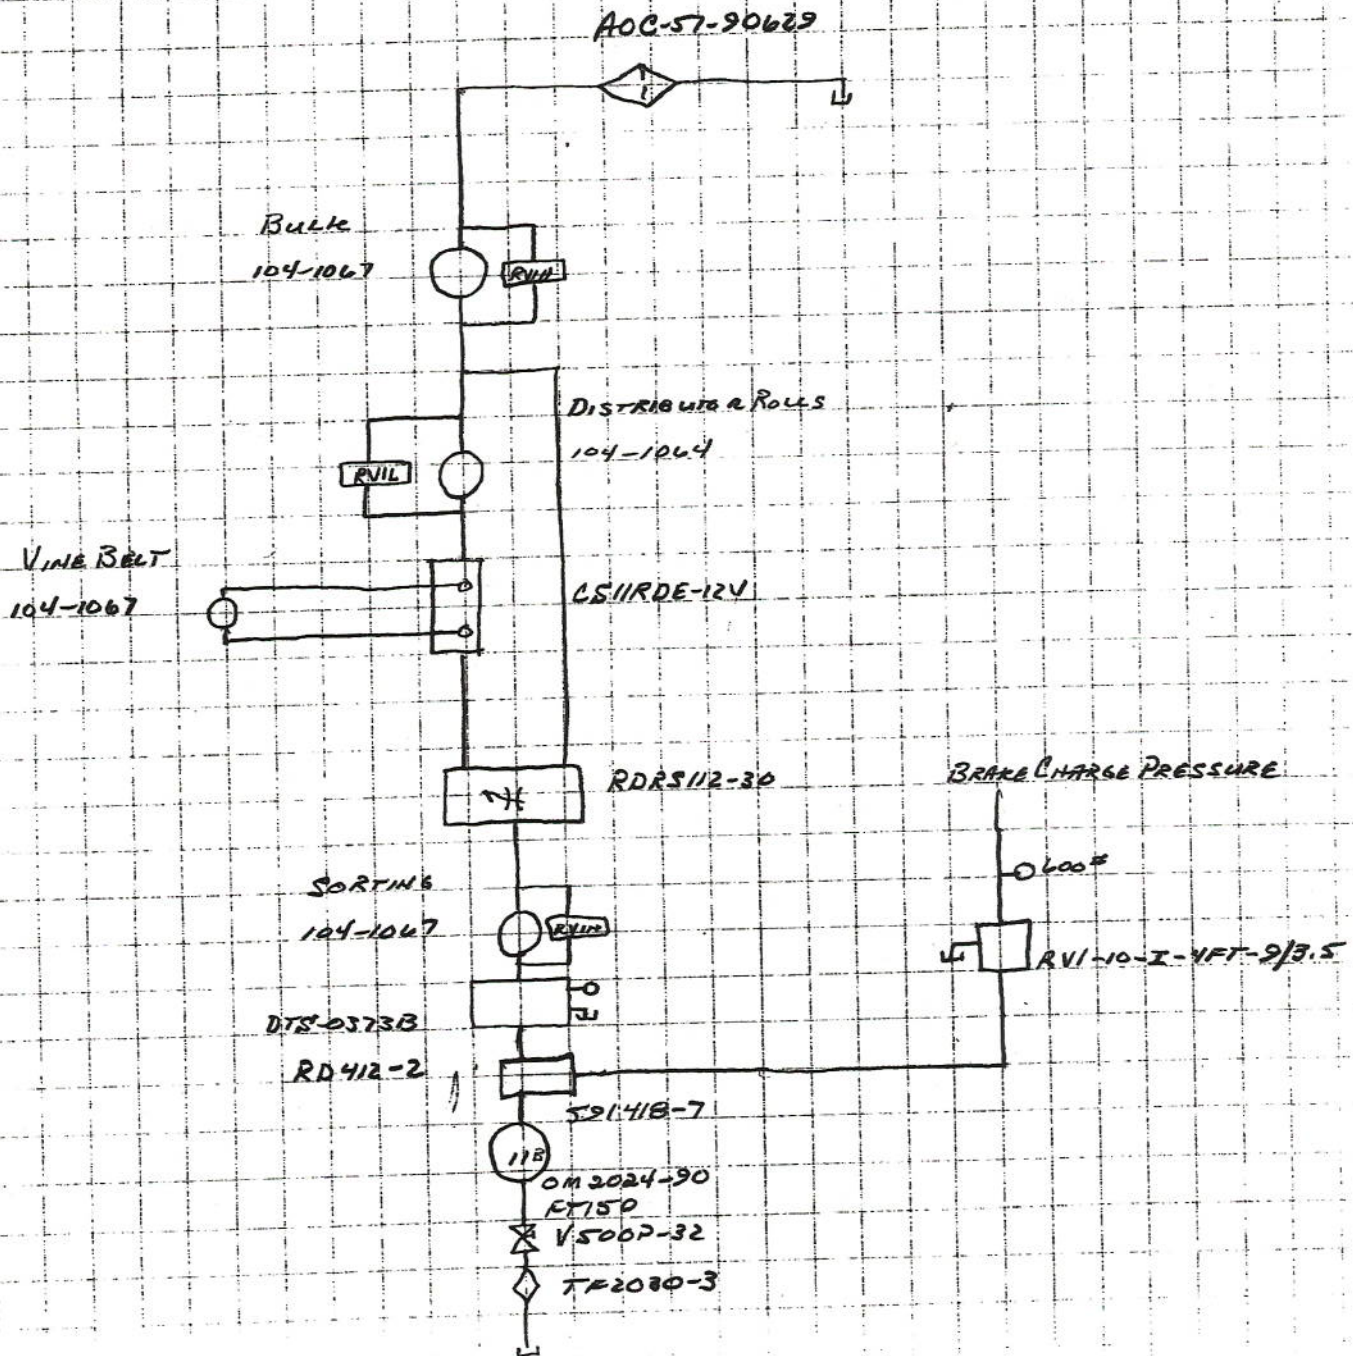 AOC-57-90629
BULK
104-1067
DISTRIBUTOR ROLLS
RV1L
104-1064
VINE BELT
104-1067
CS11RDE-12V
RDRS112-30
BRAKE CHARGE PRESSURE
SORTING
600#
104-1067
RV1-10-I-4FT-9/3.5
DTS-0373B
RD412-2
591418-7
11B
OM2024-90
FT150
V500P-32
TF2030-3